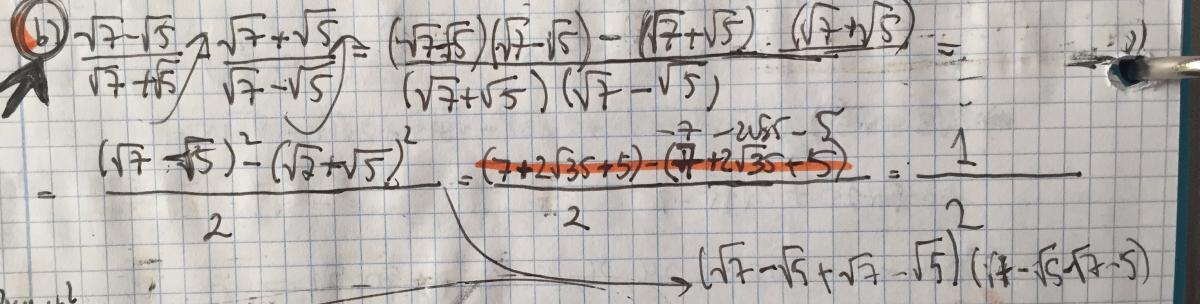 b) (√7-√5)/(√7+√5) - (√7+√5)/(√7-√5) = ((√7-√5)(√7-√5) - (√7+√5)·(√7+√5))/((√7+√5)(√7-√5)) =
-7 -2√35 -5
= ((√7-√5)²-(√7+√5)²)/2 = ((7+2√35+5)-(7+2√35+5))/2 = 1/2
(√7-√5+√7-√5)(√7-√5-√7-5)